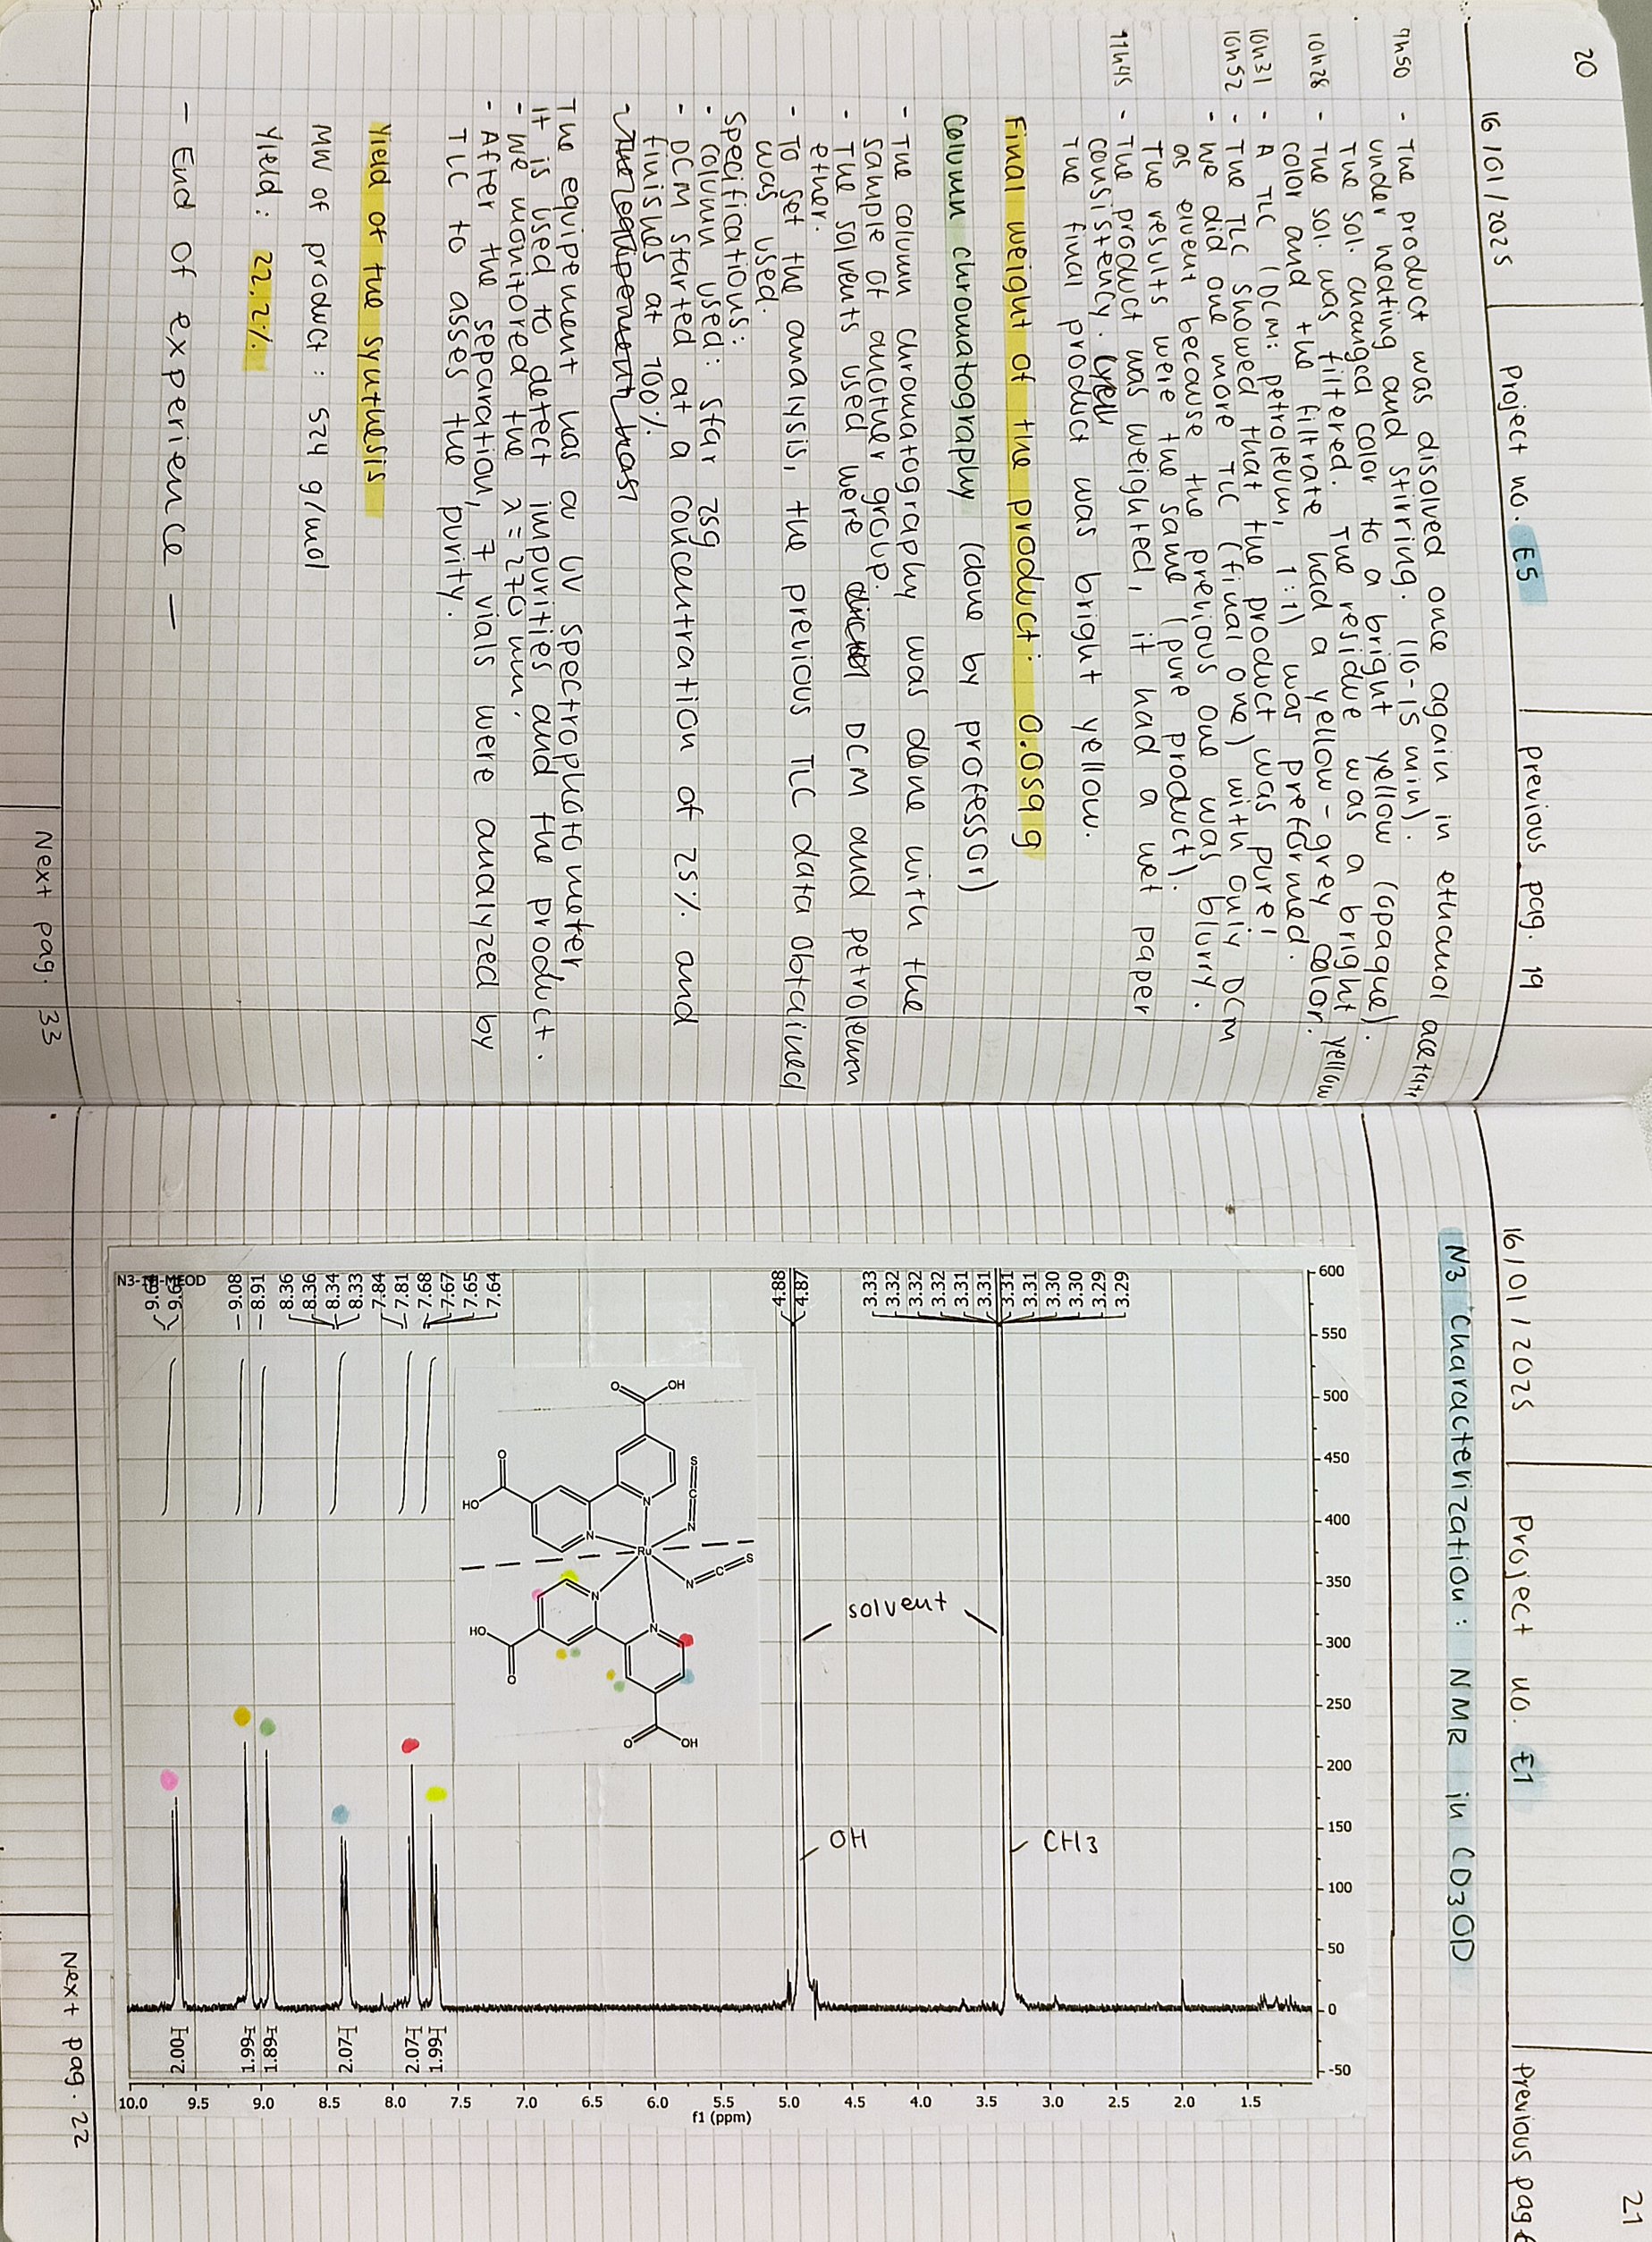 20
16/01/2025
Project no. E5
previous pag. 19
9h50 - The product was disolved once again in ethanol acetate
under heating and stirring. (10-15 min).
The sol. changed color to a bright yellow (opaque).
10h28 - The sol. was filtered. The residue was a bright yellow
color and the filtrate had a yellow-grey color.
10h31 - A TLC (DCM: petroleum, 1:1) was preformed.
- The TLC showed that the product was pure!
10h52 - We did one more TLC (final one) with only DCM
as eluent because the previous one was blurry.
The results were the same (pure product).
11h45 - The product was weighted, it had a wet paper
consistency.
The final product was bright yellow.
Final weight of the product: 0.059 g
Column chromatography (done by professor)
- The column chromatography was done with the
sample of another group.
- The solvents used were DCM and petroleum
ether.
- To set the analysis, the previous TLC data obtained
was used.
Specifications:
- Column used: Star 25g
- DCM started at a concentration of 25% and
finished at 100%.
- The equipement has
The equipement has a UV spectrophotometer,
it is used to detect impurities and the product.
- We monitored the λ = 270 nm.
- After the separation, 7 vials were analyzed by
TLC to asses the purity.
Yield of the synthesis
MW of product: 524 g/mol
Yield: 22.2%
— End of experience —
Next pag. 33
21
16/01/2025
Project no. E1
Previous pag
N3 Characterization: NMR in CD3OD
N3-1H-MEOD
9.08
8.91
8.36
8.36
8.34
8.33
7.84
7.81
7.68
7.67
7.65
7.64
4.88
4.87
3.33
3.32
3.32
3.32
3.31
3.31
3.31
3.30
3.30
3.29
3.29
600
550
500
450
400
350
300
250
200
150
100
50
0
-50
O
OH
O
HO
N
N
S
C
N
Ru
N
C
S
N
N
HO
O
O
OH
solvent
OH
CH3
2.00
1.99
1.89
2.07
2.07
1.99
10.0 9.5 9.0 8.5 8.0 7.5 7.0 6.5 6.0 5.5 5.0 4.5 4.0 3.5 3.0 2.5 2.0 1.5
f1 (ppm)
Next pag. 22